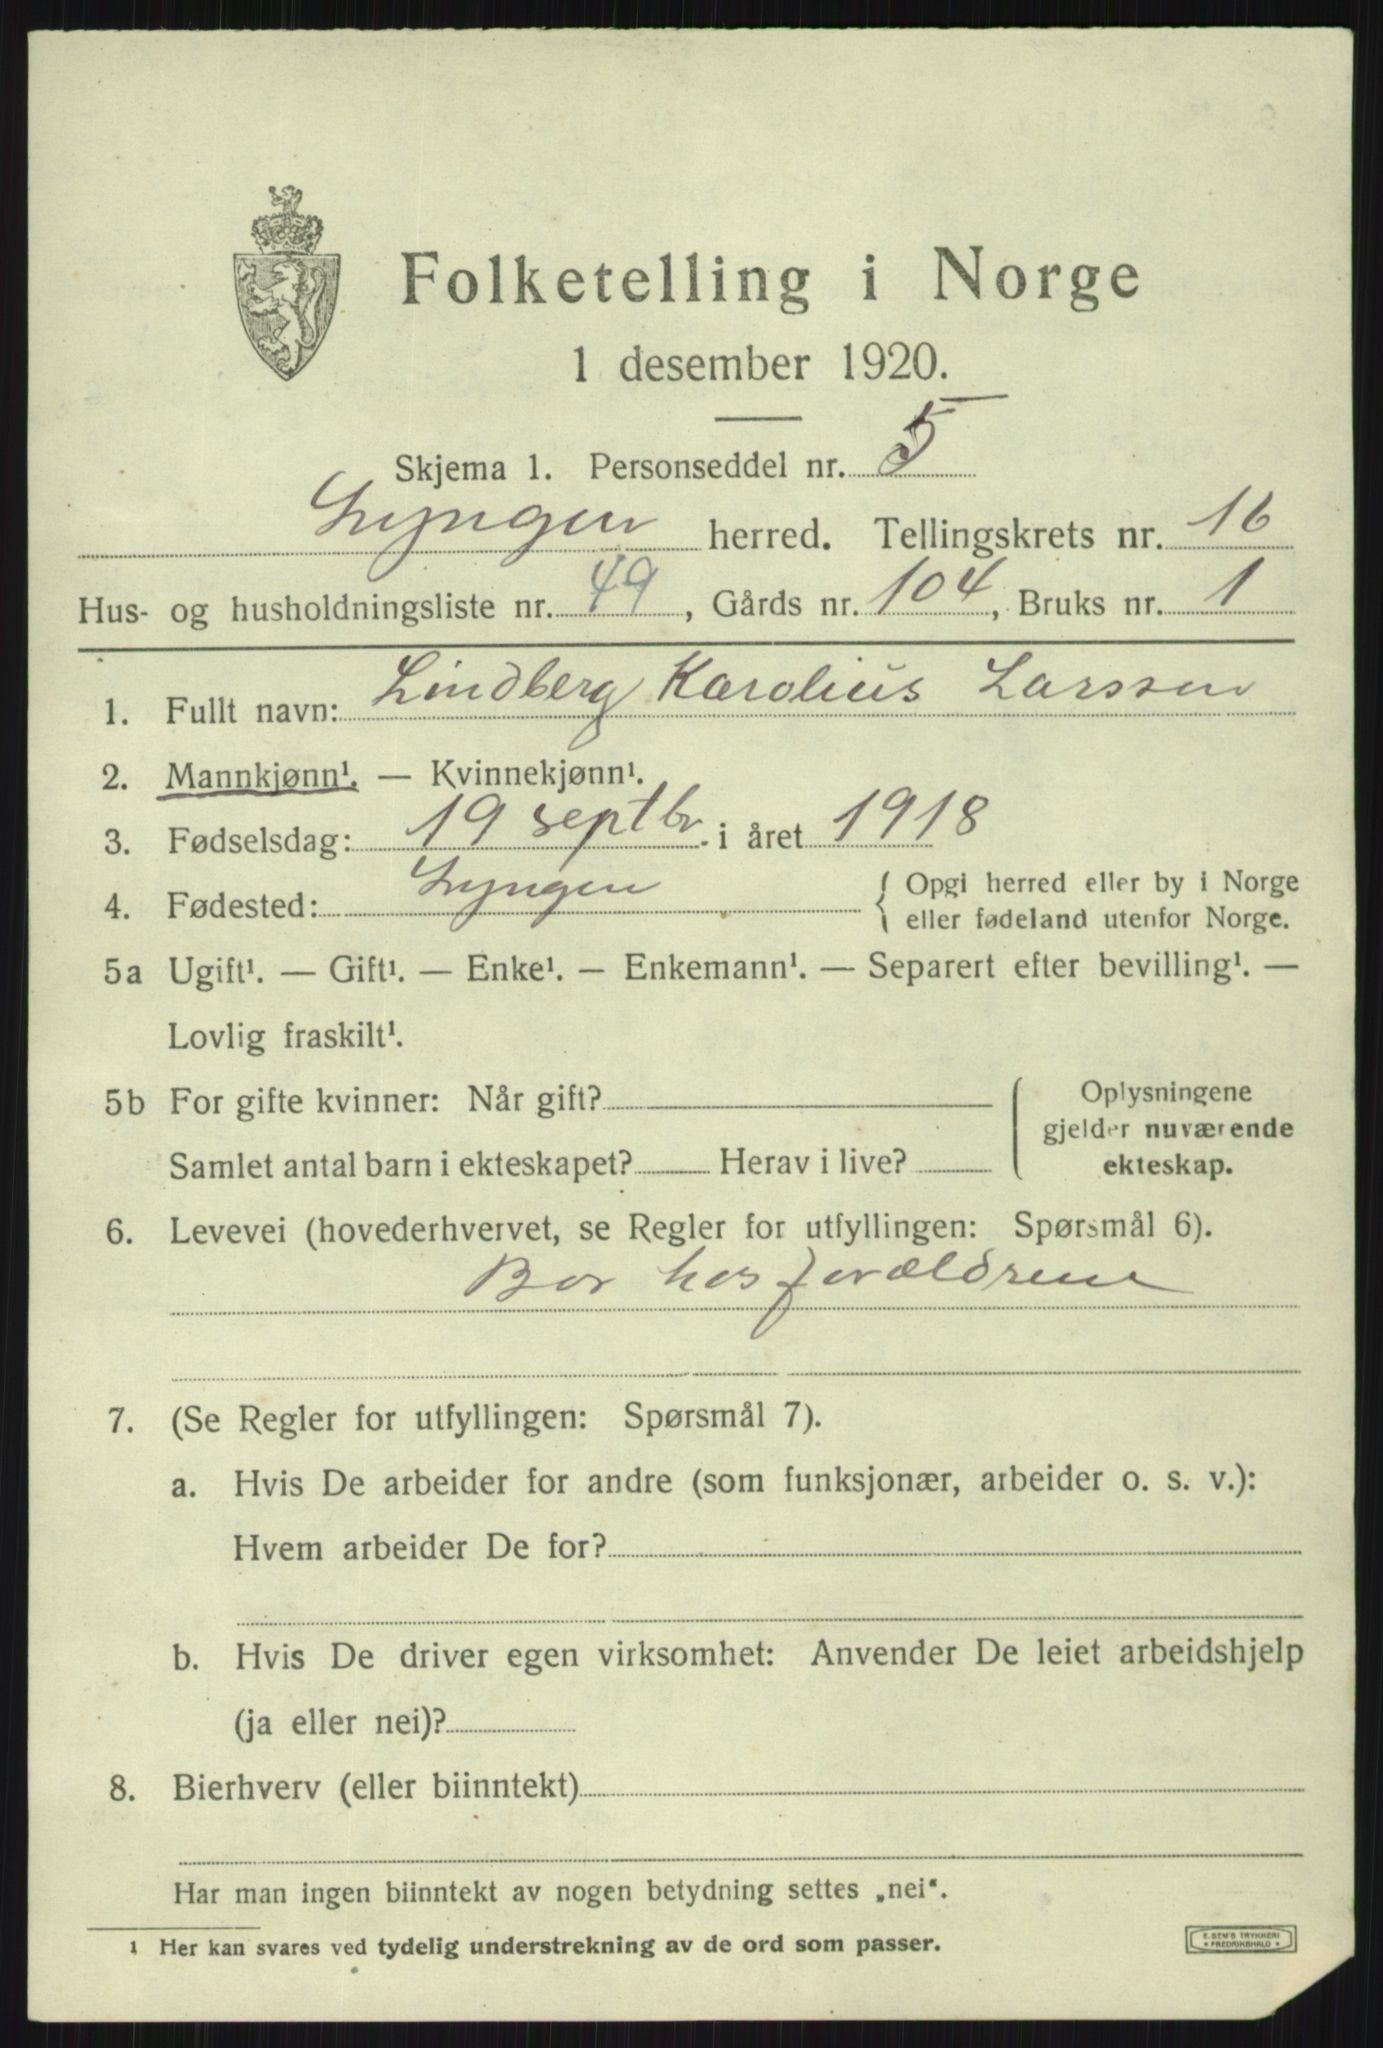 Folketelling i Norge
1 desember 1920.
Skjema 1. Personseddel nr. 5
Lyngen herred. Tellingskrets nr. 16
Hus- og husholdningsliste nr. 49, Gårds nr. 104, Bruks nr. 1
1. Fullt navn: Lindberg Karolius Larssen
2. Mannkjønn¹. — Kvinnekjønn¹.
3. Fødselsdag: 19 septbr. i året 1918
4. Fødested: Lyngen { Opgi herred eller by i Norge
eller fødeland utenfor Norge.
5a Ugift¹. — Gift¹. — Enke¹. — Enkemann¹. — Separert efter bevilling¹. —
Lovlig fraskilt¹.
5b For gifte kvinner: Når gift?
Samlet antal barn i ekteskapet? Herav i live?
Oplysningene
gjelder nuværende
ekteskap.
6. Levevei (hovederhvervet, se Regler for utfyllingen: Spørsmål 6).
Bor hos forældrene
7. (Se Regler for utfyllingen: Spørsmål 7).
a. Hvis De arbeider for andre (som funksjonær, arbeider o. s. v.):
Hvem arbeider De for?
b. Hvis De driver egen virksomhet: Anvender De leiet arbeidshjelp
(ja eller nei)?
8. Bierhverv (eller biinntekt)
Har man ingen biinntekt av nogen betydning settes „nei“.
1 Her kan svares ved tydelig understrekning av de ord som passer.
E. SEM'S TRYKKERI
* FREDRIKSHALD *